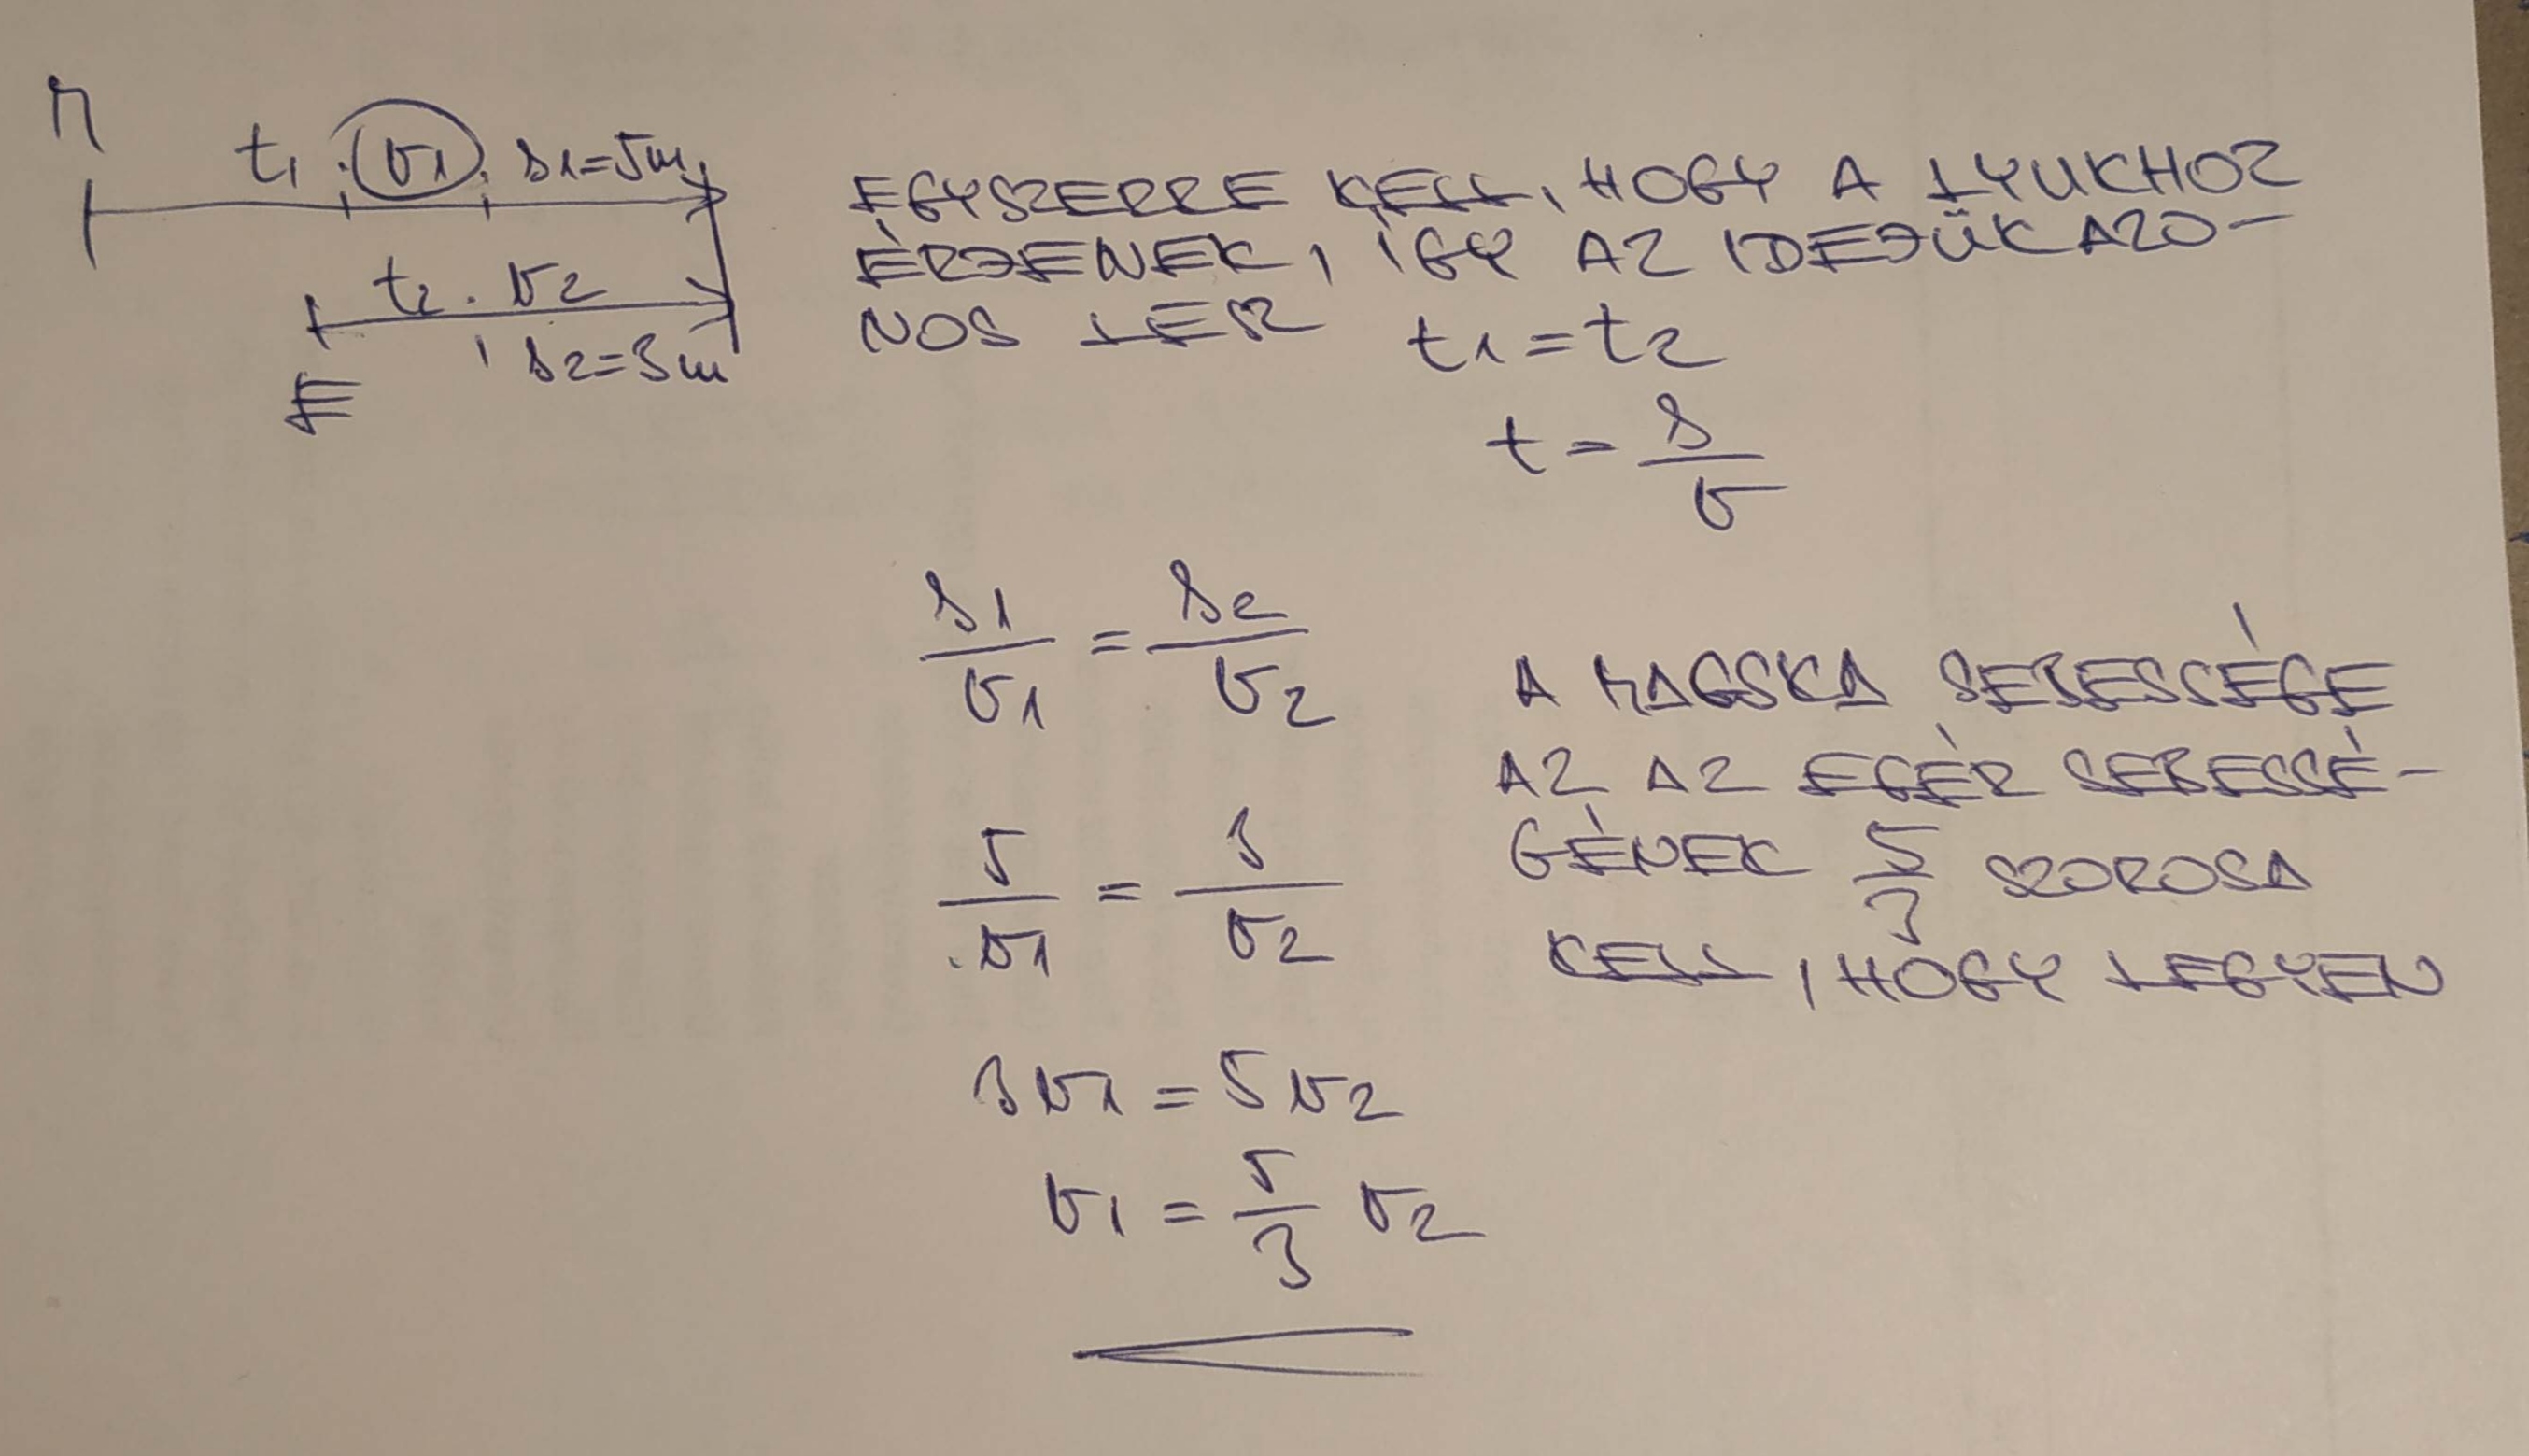 M
t1 · v1 · s1=5m
t2 · v2
s2=3m
E
EGYSZERRE KELL, HOGY A LYUKHOZ
ÉRJENEK, ÍGY AZ IDEJÜK AZO-
NOS LESZ t1=t2
t = s/v
s1/v1 = s2/v2
5/v1 = 3/v2
3v1 = 5v2
v1 = 5/3 v2
A MACSKA SEBESSÉGE
AZ AZ EGÉR SEBESSÉ-
GÉNEK 5/3 SZOROSA
KELL, HOGY LEGYEN